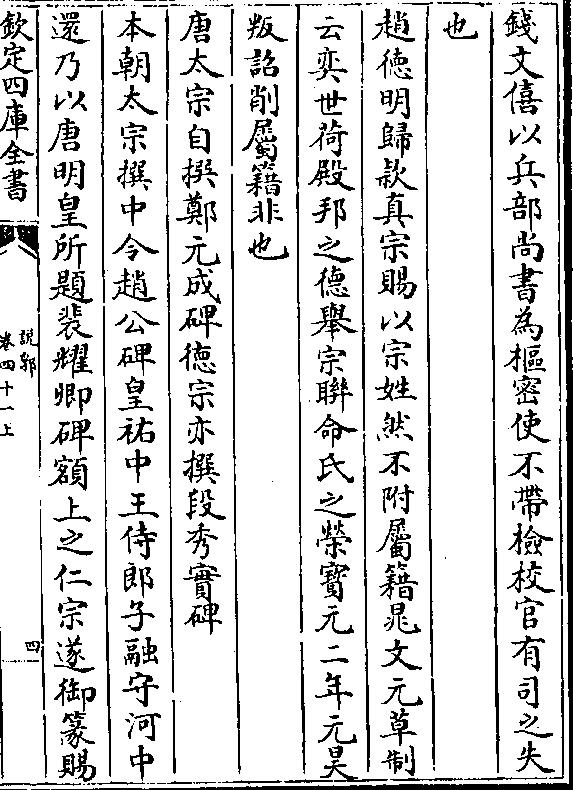 錢文僖以兵部尚書為樞密使不帶檢校官有司之失
也
趙徳明歸款真宗賜以宗姓然不附屬籍晁文元草制
云奕世荷殿邦之德舉宗聯命氏之榮寳元二年元昊
叛詔削屬籍非也
唐太宗自撰鄭元成碑德宗亦撰段秀實碑
本朝太宗撰中令趙公碑皇祐中王侍郎子融守河中
還乃以唐明皇所題裴耀卿碑額上之仁宗遂御篆賜
欽定四庫全書
説郛
卷四十一上
四